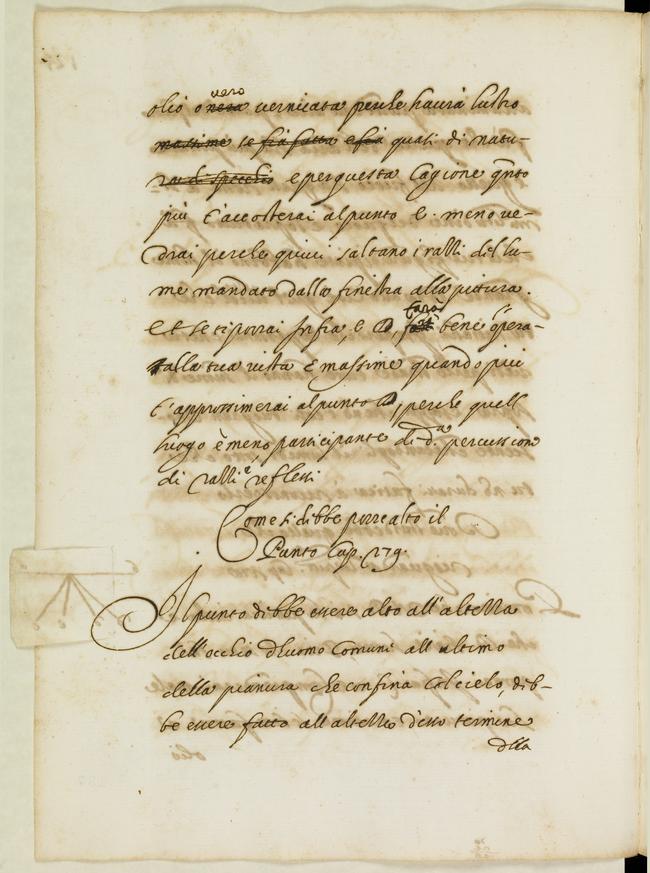 vero
olio o nera vernicata perche haurà lustro
massime se sia fatta e sia quasi di natu-
ra di specchio e per questa Cagione qnto
più t'accosterai al punto e. meno ve-
drai perche quiui saltano i ralli del lu-
me mandato dalla finestra alla pittura.
sarà
et se ti porrai Infra, e D, bene opera-
ta alla tua vista e, massime quando più
t'approssimerai al punto D, perche quell
luogo è meno participante di d.a percussione
di ralli e reflessi
Come si debbe porre alto il
Punto Cap. 279.
Il punto debbe essere alto all'altezza
dell'occhio d'huomo Comuni all ultimo
della pianura che confina Col cielo, deb-
be essere fatto all altezza detto termine
della
olio